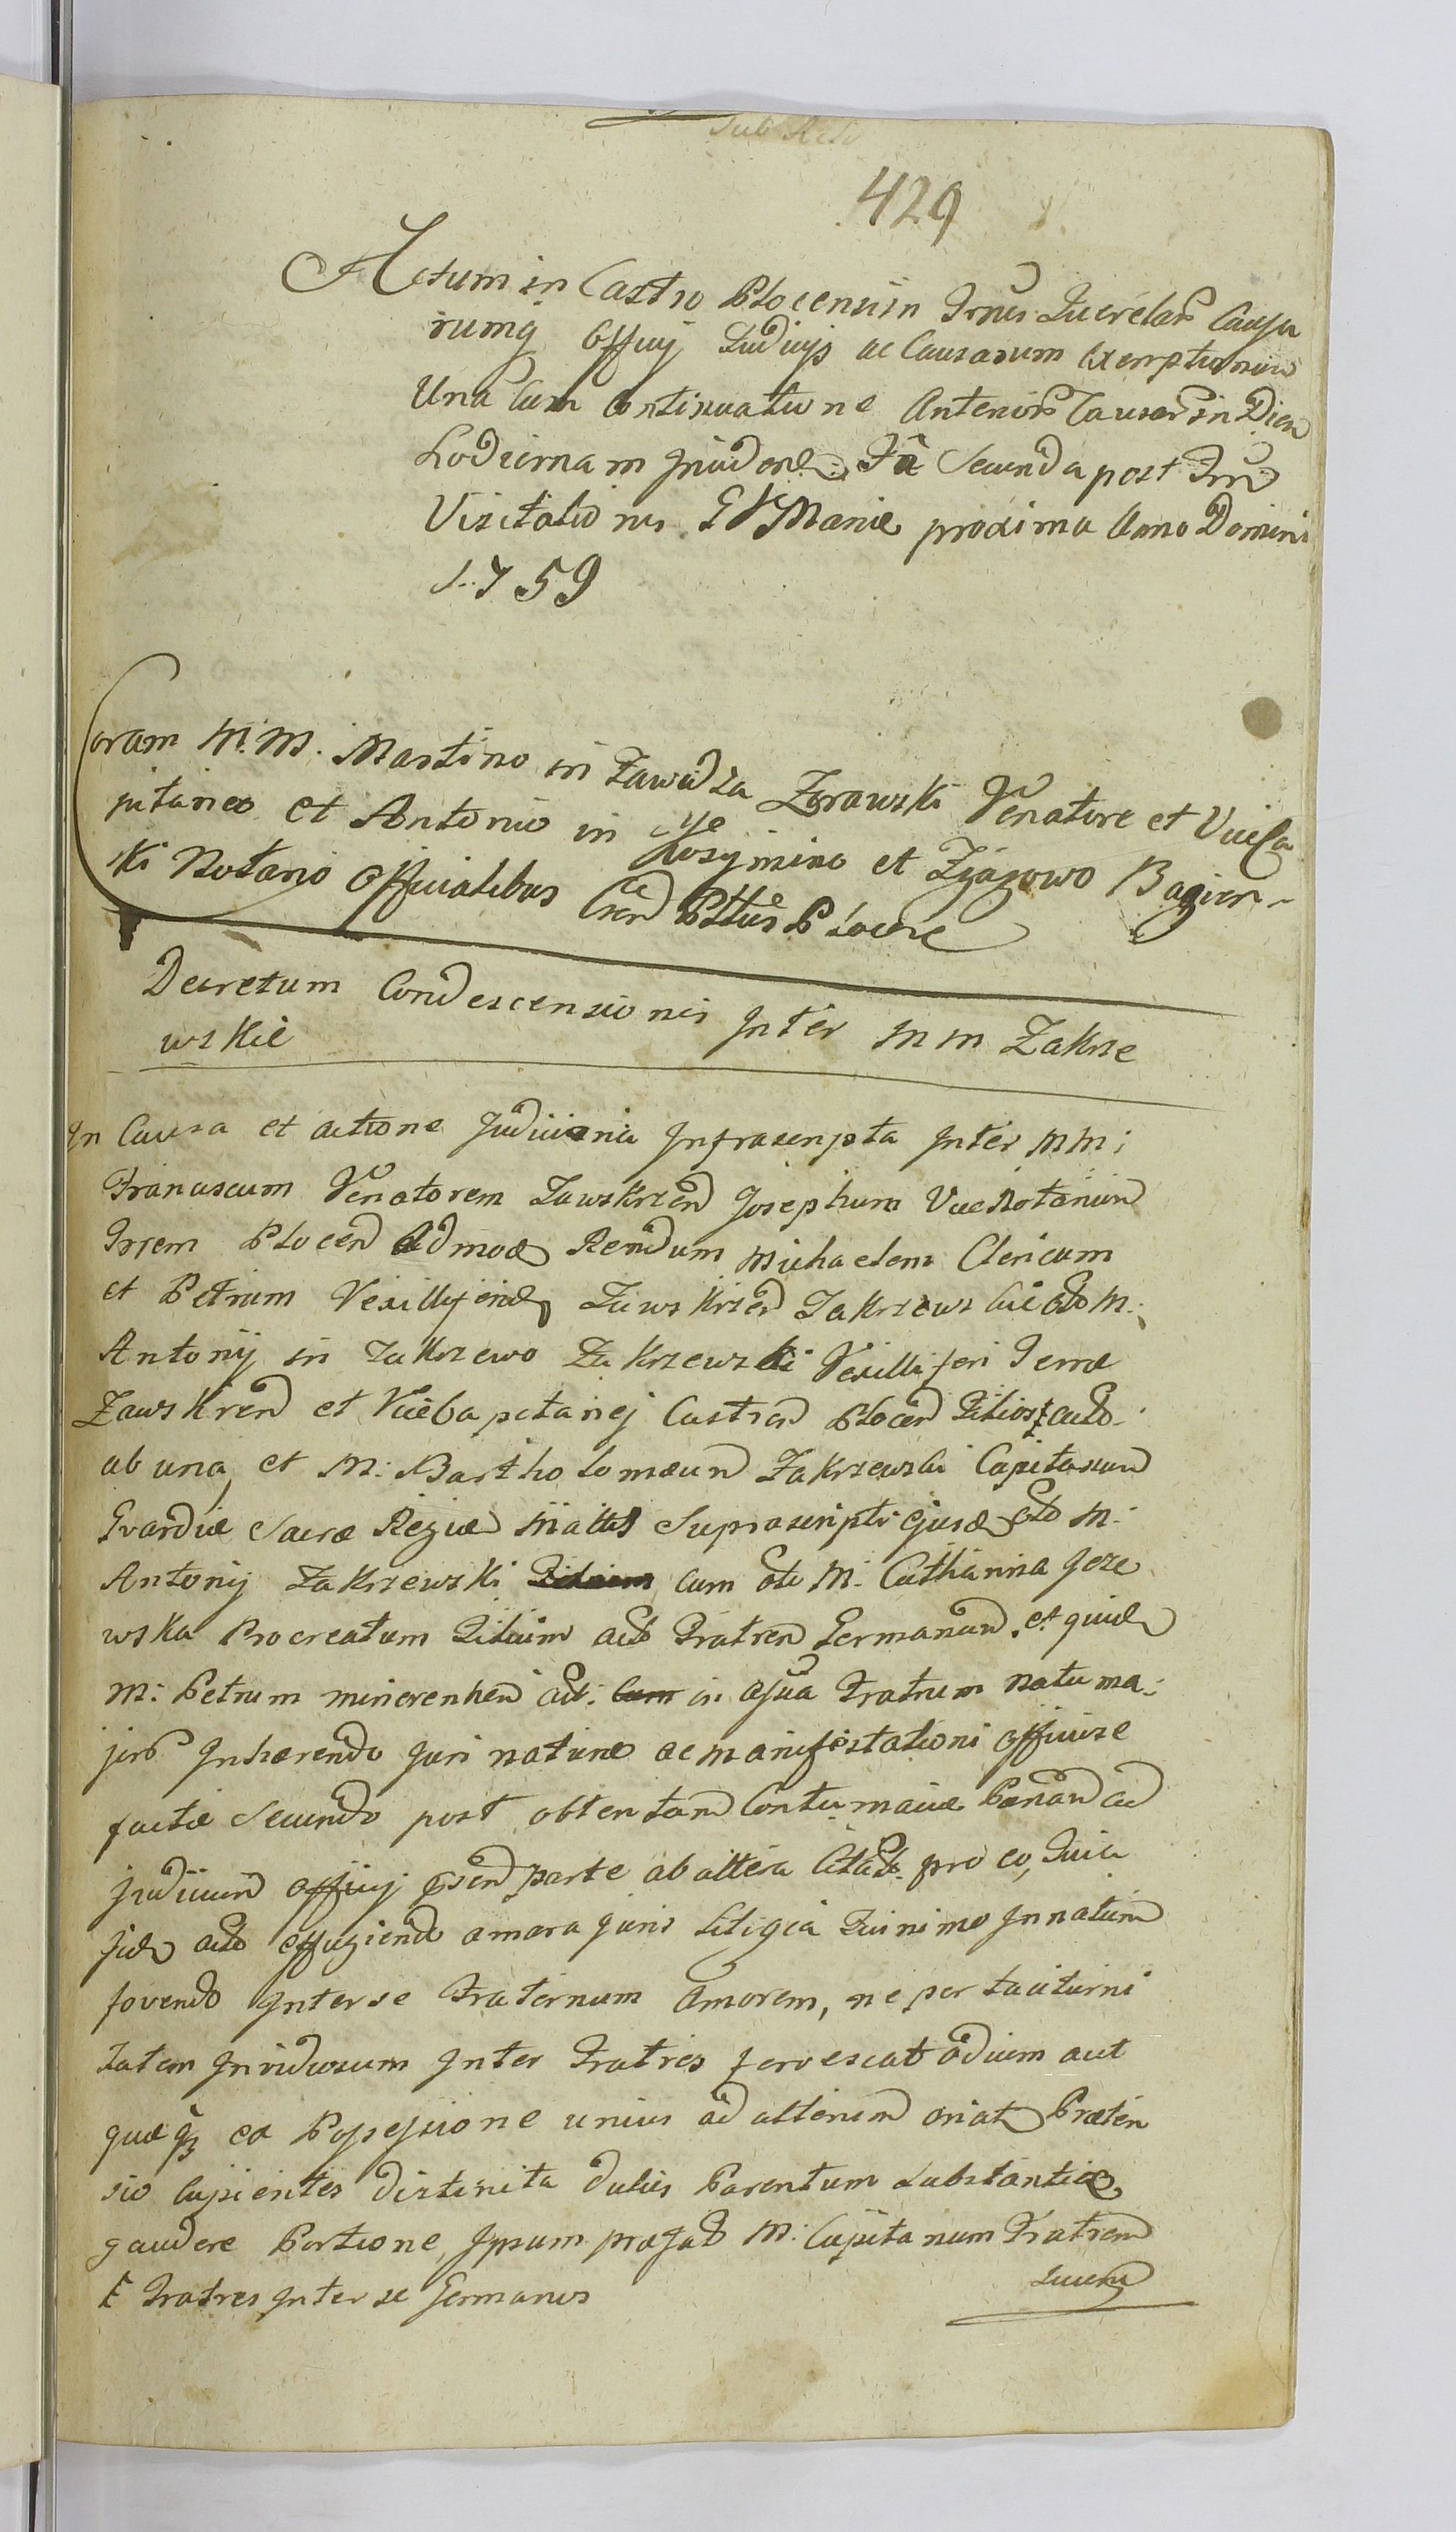 429
Actum in Castro Plocensi in Trnis Querelar Causa
rumq Officij Judicijs ac Causarum Exemptionum
Una Cum Continuatione Anterior Causar in Diem
hodiernam Inciden: Fa Secunda post Frm
Visitationis B V Mariæ proxima Anno Domini
1759
Coram M. M. Martino in Zawadza Zorawski Venatore et ViceCa
pitaneo et Antonio in Kosymino et Zgagowo Bagien-
ski Notario Officialibus Cren Pttus Plocze
Decretum Condescensionis Inter M M Zakrze
wskie
In Causa et actione Judiciaria Infrascripta Inter MM:
Franciscum Venatorem Zawskrzen Josephum ViceNotarium
Trrem Plocen Admod Rendum Michaelem Clericum
et Petrum Vexilliferid Zawskrzen Zakrzewskie olo M:
Antonij in Zakrzewo Zakrzewski Vexilliferi Terræ
Zawskren et ViceCapitanej Castren Plocen Filios acto-
ab una, et M: Bartholomæum Zakrzewski Capitaneum
Gvardiæ Sacræ Regiæ Mattis Suprascripti ejusd olo M:
Antonij Zakrzewski Filium cum oli M: Catharina Jeze
wska Procreatum Filium acto Fratrem Germanum, et quid
M: Petrum minorenhem act: cum in assa Fratrum natu ma-
jorb Inhærendo Juri naturæ ac manifestationi officiose
factæ Secundo post obtentam Contumaciæ Pænam ad
Judicium officij psen parte ab altera Citat. pro eo, Quia
jid acto effugiendo amara Juris Litigia Quinimo Innatum
fovendo Inter se Fraternum Amorem, ne per taciturni
tatem Invidiosum Inter Fratres fervescat odium aut
quæq ex Possessione unius ad alterum oriat Præten
sio Cupientes distincta dulcis Parentum Substantiæ
gaudere Portione, Ipsum præfat M: Capitanum Fratrem
Fratres Inter se Germanos
suum